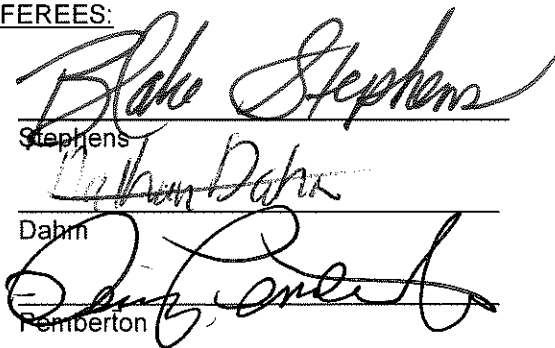 FEREES:
Blake Stephens
Stephens
Dahm
Dahm
Pemberton